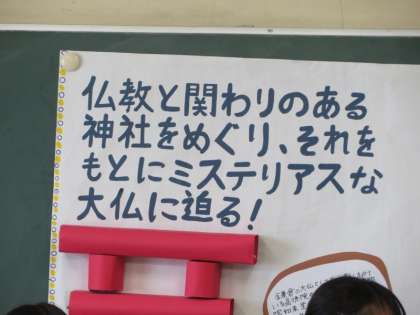 仏教と関わりのある
神社をめぐり、それを
もとにミステリアスな
大仏に迫る!